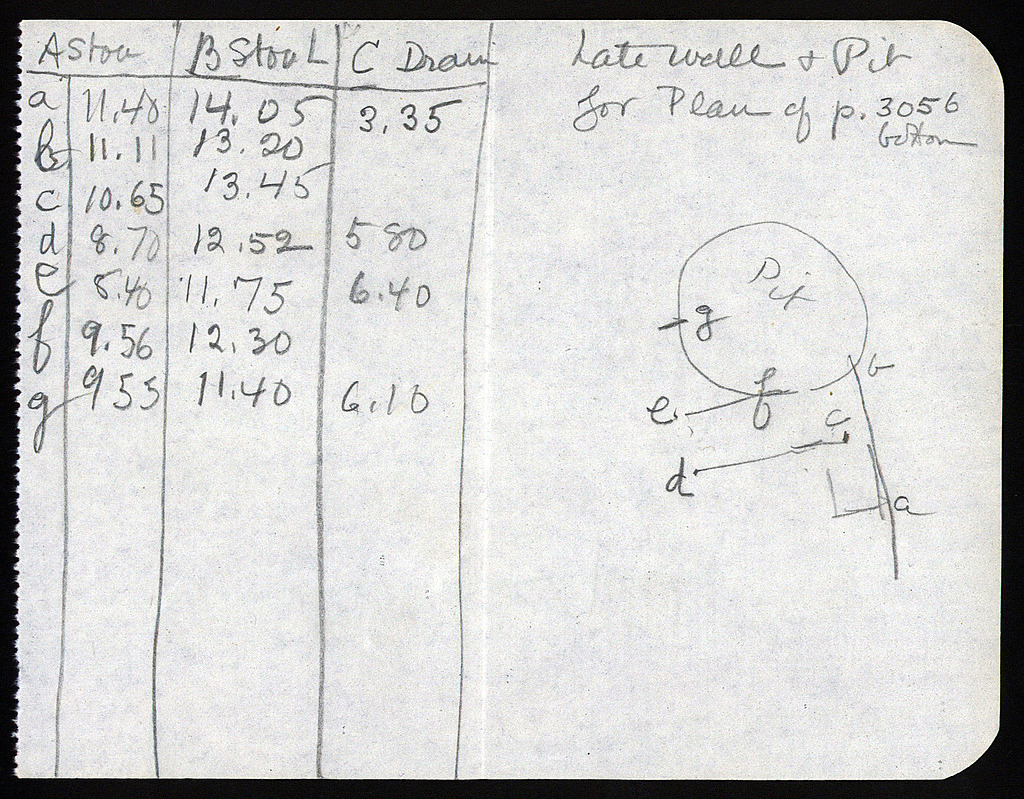 A Stoa B Stoa L C Drain
a 11.40 14.05 3.35
b 11.11 13.20
c 10.65 13.45
d 8.70 12.52 5 80
e 8.40 11.75 6.40
f 9.56 12.30
g 9 55 11.40 6.10
Late wall & Pit
for Plan cf p. 3056
bottom
Pit
g
b
e f c
d
a